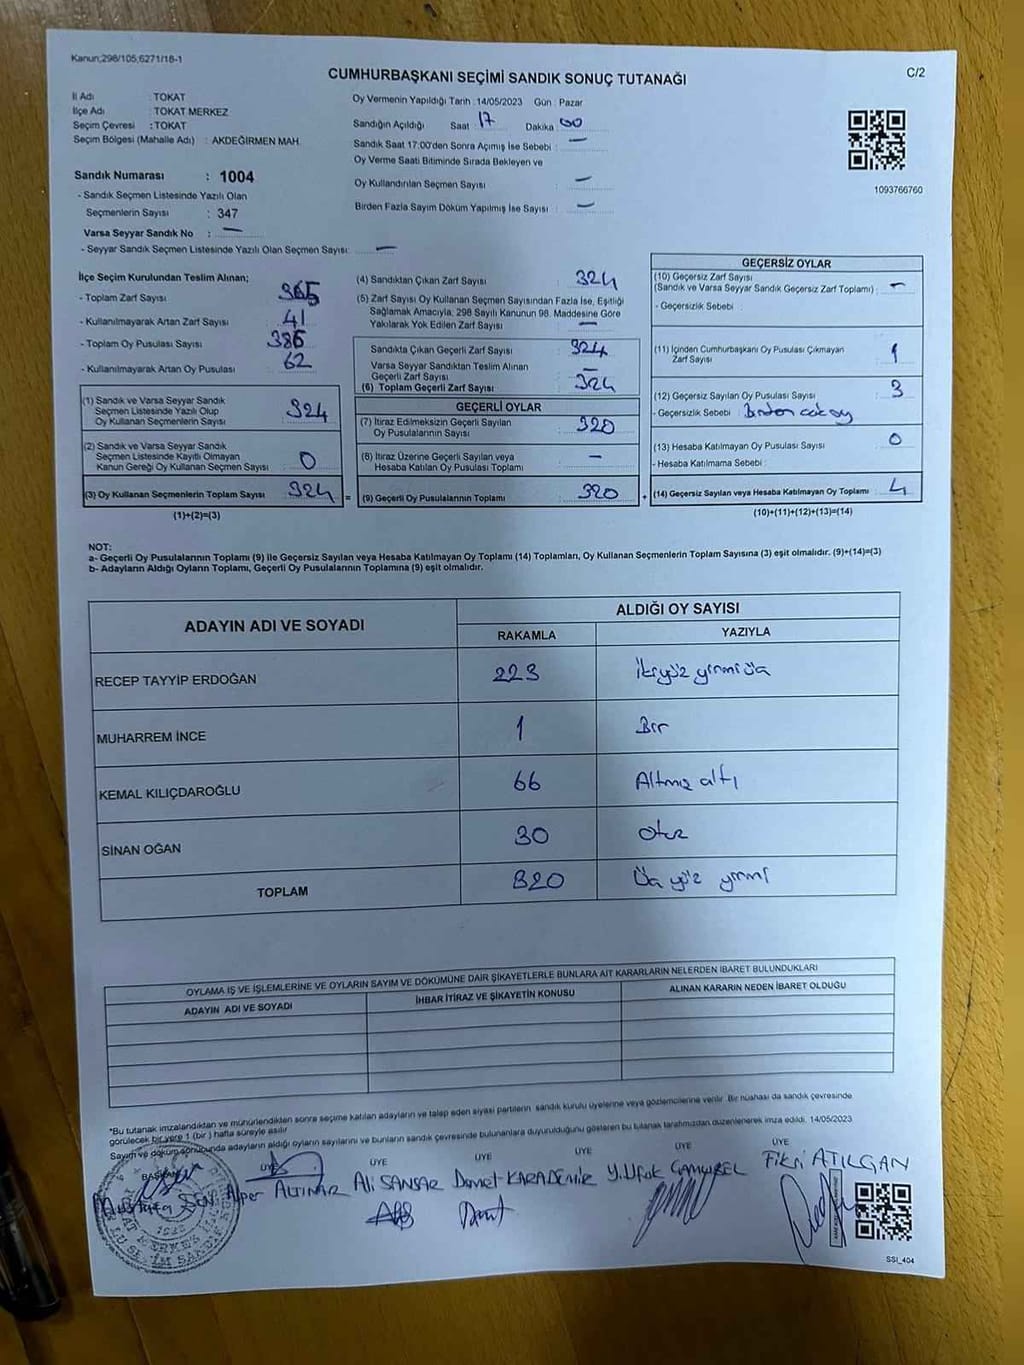 Kanun;298/105,6271/18-1
CUMHURBAŞKANI SEÇİMİ SANDIK SONUÇ TUTANAĞI
C/2
İl Adı : TOKAT
İlçe Adı : TOKAT MERKEZ
Seçim Çevresi : TOKAT
Seçim Bölgesi (Mahalle Adı) : AKDEĞİRMEN MAH.
Sandık Numarası : 1004
- Sandık Seçmen Listesinde Yazılı Olan
Seçmenlerin Sayısı : 347
Varsa Seyyar Sandık No : —
- Seyyar Sandık Seçmen Listesinde Yazılı Olan Seçmen Sayısı: —
Oy Vermenin Yapıldığı Tarih : 14/05/2023 Gün : Pazar
Sandığın Açıldığı Saat : 17 Dakika : 00
Sandık Saat 17:00'den Sonra Açımış İse Sebebi : —
Oy Verme Saati Bitiminde Sırada Bekleyen ve
Oy Kullandırılan Seçmen Sayısı : —
Birden Fazla Sayım Döküm Yapılmış İse Sayısı : —
1093766760
İlçe Seçim Kurulundan Teslim Alınan;
- Toplam Zarf Sayısı : 365
- Kullanılmayarak Artan Zarf Sayısı : 41
- Toplam Oy Pusulası Sayısı : 386
- Kullanılmayarak Artan Oy Pusulası : 62
(1) Sandık ve Varsa Seyyar Sandık
Seçmen Listesinde Yazılı Olup
Oy Kullanan Seçmenlerin Sayısı : 324
(2) Sandık ve Varsa Seyyar Sandık
Seçmen Listesinde Kayıtlı Olmayan
Kanun Gereği Oy Kullanan Seçmen Sayısı : 0
(3) Oy Kullanan Seçmenlerin Toplam Sayısı : 324
(1)+(2)=(3)
(4) Sandıktan Çıkan Zarf Sayısı : 324
(5) Zarf Sayısı Oy Kullanan Seçmen Sayısından Fazla İse, Eşitliği
Sağlamak Amacıyla, 298 Sayılı Kanunun 98. Maddesine Göre
Yakılarak Yok Edilen Zarf Sayısı : —
Sandıkta Çıkan Geçerli Zarf Sayısı : 324
Varsa Seyyar Sandıktan Teslim Alınan
Geçerli Zarf Sayısı : —
(6) Toplam Geçerli Zarf Sayısı : 324
GEÇERLİ OYLAR
(7) İtiraz Edilmeksizin Geçerli Sayılan
Oy Pusulalarının Sayısı : 320
(8) İtiraz Üzerine Geçerli Sayılan veya
Hesaba Katılan Oy Pusulası Toplamı : —
= (9) Geçerli Oy Pusulalarının Toplamı : 320
GEÇERSİZ OYLAR
(10) Geçersiz Zarf Sayısı
(Sandık ve Varsa Seyyar Sandık Geçersiz Zarf Toplamı) : —
- Geçersizlik Sebebi :
(11) İçinden Cumhurbaşkanı Oy Pusulası Çıkmayan
Zarf Sayısı : 1
(12) Geçersiz Sayılan Oy Pusulası Sayısı : 3
- Geçersizlik Sebebi : Birden çok oy
(13) Hesaba Katılmayan Oy Pusulası Sayısı : 0
- Hesaba Katılmama Sebebi :
+ (14) Geçersiz Sayılan veya Hesaba Katılmayan Oy Toplamı : 4
(10)+(11)+(12)+(13)=(14)
NOT:
a- Geçerli Oy Pusulalarının Toplamı (9) ile Geçersiz Sayılan veya Hesaba Katılmayan Oy Toplamı (14) Toplamları, Oy Kullanan Seçmenlerin Toplam Sayısına (3) eşit olmalıdır. (9)+(14)=(3)
b- Adayların Aldığı Oyların Toplamı, Geçerli Oy Pusulalarının Toplamına (9) eşit olmalıdır.
ADAYIN ADI VE SOYADI
ALDIĞI OY SAYISI
RAKAMLA YAZIYLA
RECEP TAYYİP ERDOĞAN 223 İkiyüz yirmi üç
MUHARREM İNCE 1 Bir
KEMAL KILIÇDAROĞLU 66 Altmış altı
SİNAN OĞAN 30 otuz
TOPLAM 320 Üç yüz yirmi
OYLAMA İŞ VE İŞLEMLERİNE VE OYLARIN SAYIM VE DÖKÜMÜNE DAİR ŞİKAYETLERLE BUNLARA AİT KARARLARIN NELERDEN İBARET BULUNDUKLARI
ADAYIN ADI VE SOYADI İHBAR İTİRAZ VE ŞİKAYETİN KONUSU ALINAN KARARIN NEDEN İBARET OLDUĞU
*Bu tutanak imzalandıktan ve mühürlendikten sonra seçime katılan adayların ve talep eden siyasi partilerin sandık kurulu üyelerine veya gözlemcilerine verilir. Bir nüshası da sandık çevresinde
görülecek bir yere 1 (bir) hafta süreyle asılır.
Sayım ve döküm sonucunda adayların aldığı oyların sayılarını ve bunların sandık çevresinde bulunanlara duyurulduğunu gösteren bu tutanak tarafımızdan düzenlenerek imza edildi. 14/05/2023
BAŞKAN ÜYE ÜYE ÜYE ÜYE ÜYE
Mustafa ŞEN Alper ALTINAR Ali SANSAR Demet KARADEMİR Y.Ufuk ÇAMUREL Fikri ATILGAN
SSI_404